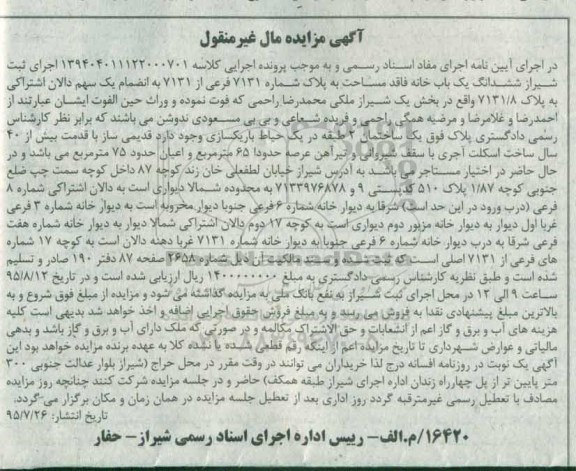 آگهی مزایده مال غیرمنقول
در اجرای آیین نامه اجرای مفاد اسناد رسمی و به موجب پرونده اجرایی کلاسه ۱۳۹۴۰۴۰۱۱۱۲۲۰۰۰۷۰۱ اجرای ثبت
شیراز ششدانگ یک باب خانه فاقد مساحت به پلاک شماره ۷۱۳۱ فرعی از ۷۱۳۱ به انضمام یک سهم دالان اشتراکی
به پلاک ۷۱۳۱/۸ واقع در بخش یک شیراز ملکی محمدرضا راحمی که فوت نموده و وراث حین الفوت ایشان عبارتند از
احمدرضا و غلامرضا و مرضیه همگی راحمی و فریده شعاعی و بی بی مسعودی ندوشن می باشند که برابر نظر کارشناس
رسمی دادگستری پلاک فوق یک ساختمان ۲ طبقه در یک حیاط باریکسازی وجود دارد قدیمی ساز با قدمت بیش از ۴۰
سال ساخت اسکلت آجری با سقف شیروانی و تیرآهن عرصه حدودا ۶۵ مترمربع و اعیان حدود ۷۵ مترمربع می باشد و در
حال حاضر در اختیار مستاجر می باشد به آدرس شیراز خیابان لطفعلی خان زند کوچه ۸۷ داخل کوچه سمت چپ ضلع
جنوبی کوچه ۱/۸۷ پلاک ۵۱۰ کدپستی ۹ و ۷۱۳۳۹۷۶۸۷۸ به محدوده شمالا دیواری است به دالان اشتراکی شماره ۸
فرعی (درب ورود در این حد است) شرقا به دیوار خانه شماره ۶ فرعی جنوبا دیوار مخروبه است به دیوار خانه شماره ۳ فرعی
غربا اول دیوار به دیوار خانه مزبور دوم دیواری است به کوچه ۱۷ دوم دالان اشتراکی شمالا دیوار به دیوار خانه شماره هفت
فرعی شرقا به درب دیوار خانه شماره ۶ فرعی جنوبا به دیوار خانه شماره ۷۱۳۱ فرعی غربا دهنه دالان است به کوچه ۱۷ شماره
های فرعی از ۷۱۳۱ اصلی است که سند مالکیت آن ذیل شماره ۲۶۵۸ صفحه ۸۷ دفتر ۱۹۰ صادر و تسلیم
شده است و طبق نظریه کارشناس رسمی دادگستری به مبلغ ۱۴۰۰۰۰۰۰۰۰ ریال ارزیابی شده است و در تاریخ ۹۵/۸/۱۲
ساعت ۹ الی ۱۲ در محل اجرای ثبت شیراز به نفع بانک ملی به مزایده گذاشته می شود و مزایده از مبلغ فوق شروع و به
بالاترین مبلغ پیشنهادی نقدا به فروش می رسد و به مبلغ فروش حقوق اجرایی اضافه و اخذ خواهد شد بدیهی است کلیه
هزینه های آب و برق و گاز اعم از انشعابات و حق الاشتراک مکالمه و در صورتی که ملک دارای آب و برق و گاز باشد و بدهی
مالیاتی و عوارض شهرداری تا تاریخ مزایده اعم از اینکه رقم قطعی شده یا نشده کلا به عهده برنده مزایده خواهد بود این
آگهی یک نوبت در روزنامه افسانه درج لذا خریداران می توانند در وقت مقرر در محل حراج (شیراز بلوار عدالت جنوبی ۳۰۰
متر پایین تر از پل چهارراه زندان اداره اجرای شیراز طبقه همکف) حاضر و در جلسه مزایده شرکت کنند چنانچه روز مزایده
مصادف با تعطیل رسمی غیرمترقبه گردد روز اداری بعد از تعطیل جلسه مزایده در همان زمان و مکان برگزار می گردد.
تاریخ انتشار: ۹۵/۷/۲۶
۱۶۴۲۰/م.الف- رییس اداره اجرای اسناد رسمی شیراز- حفار